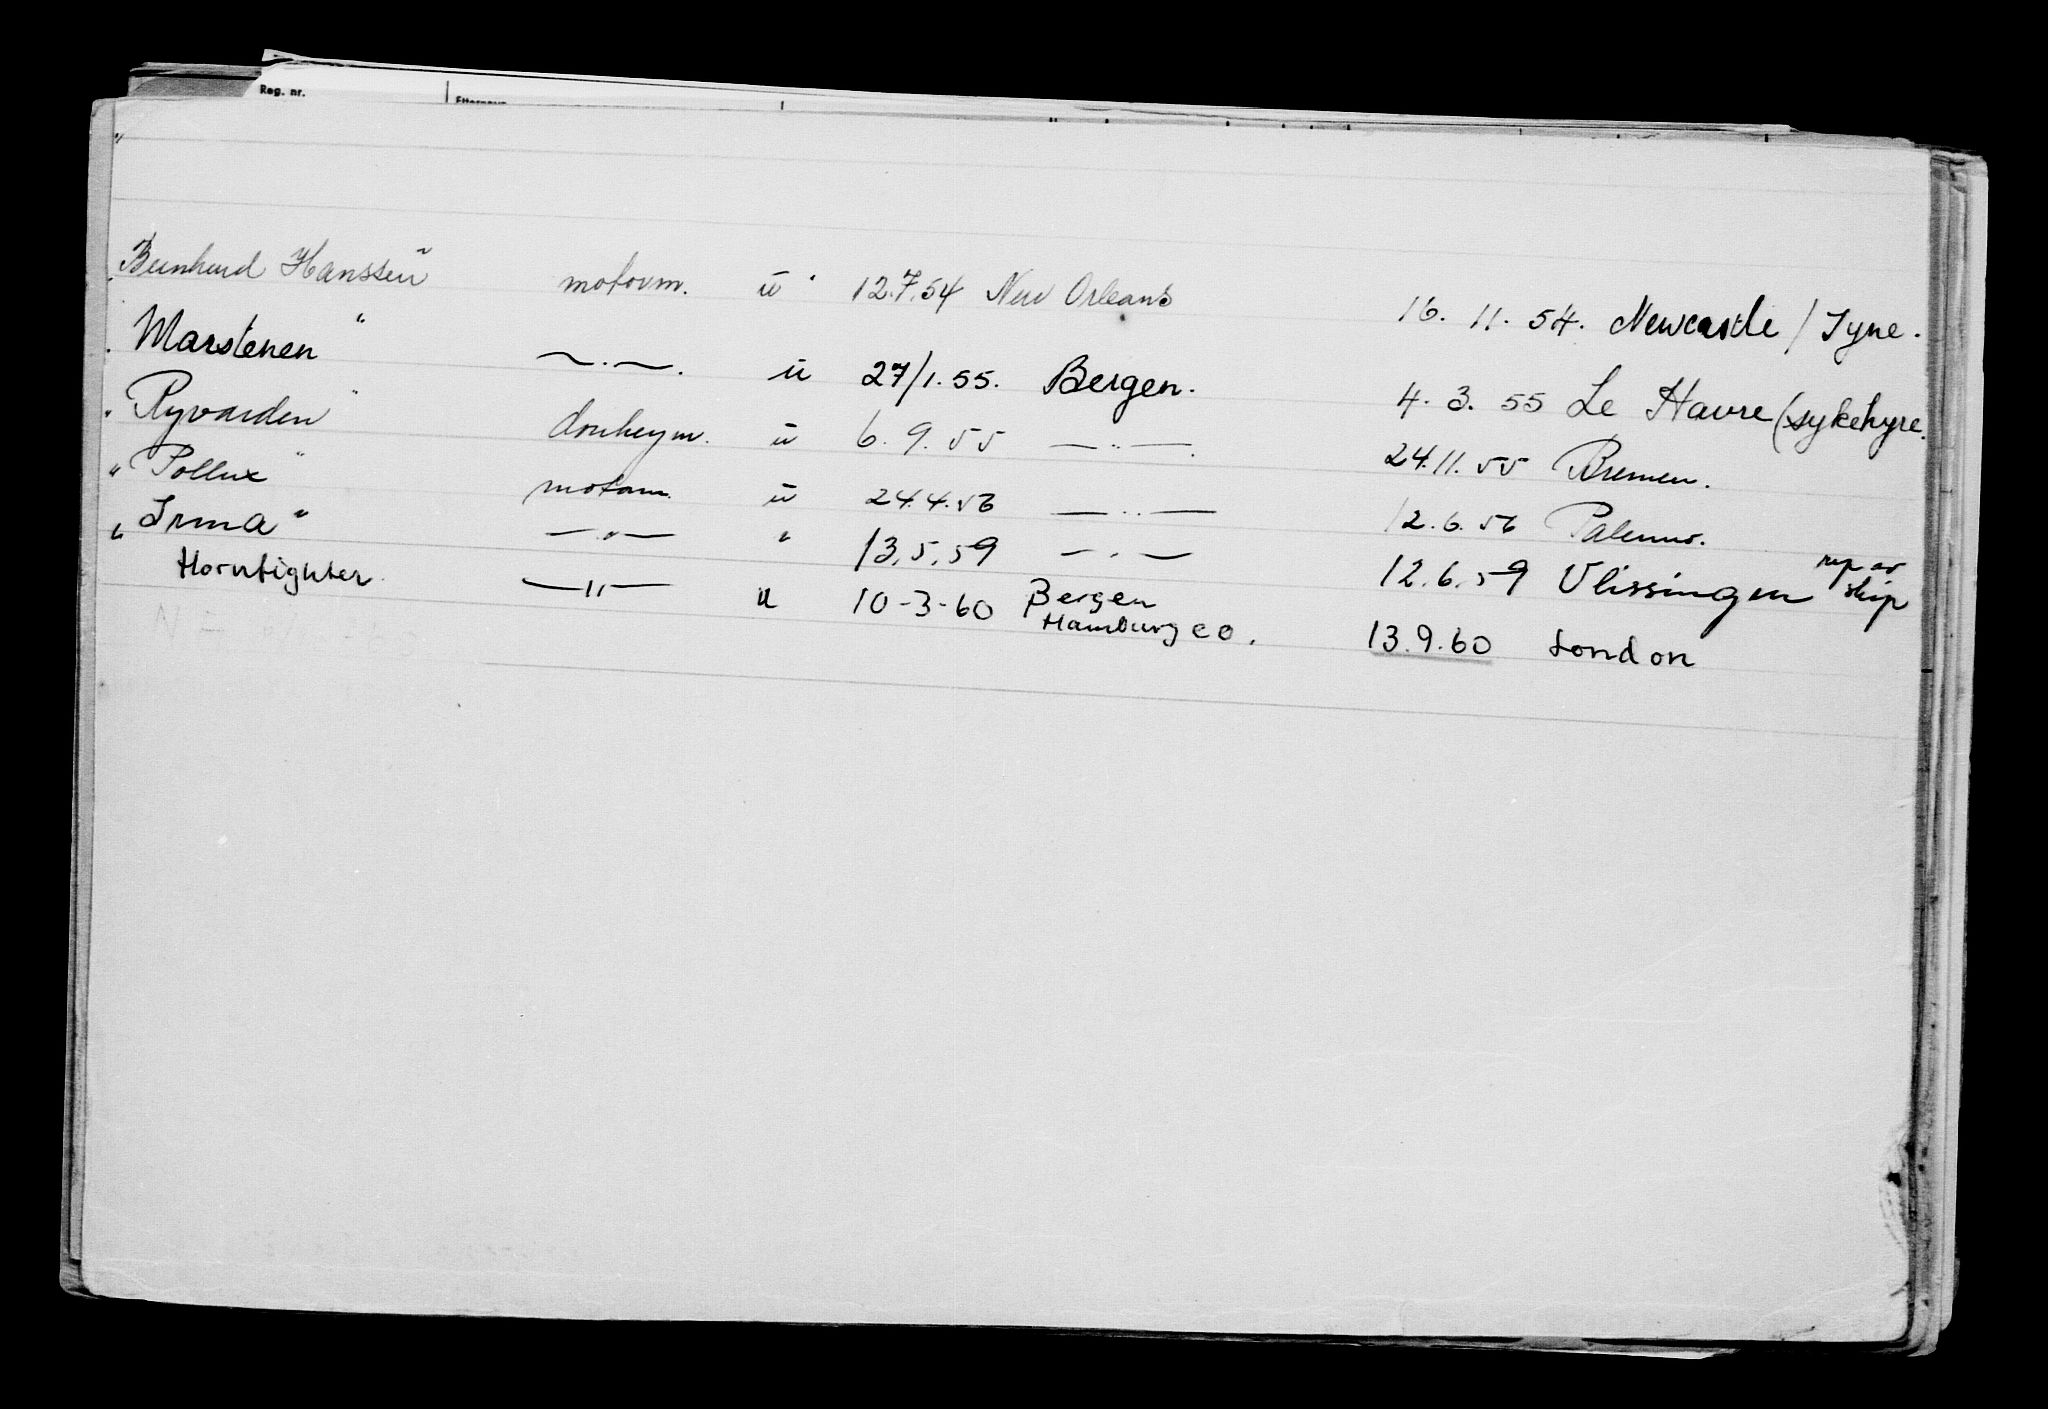 Reg. nr. Etternavn
"Bernhard Hanssen" motorm. u 12.7.54 New Orleans 16. 11. 54. Newcastle / Tyne.
"Marstenen" —"—. u 27/1.55. Bergen. 4. 3. 55 Le Havre (sykehyre.
"Ryvarden" donkeym. u 6. 9. 55 —"—. 24.11. 55 Bremen.
"Pollux" motorm. u 24.4.56 —"— 12.6.56 Palermo.
"Irma" —"— " 13.5.59 —"— 12.6.59 Vlissingen rep av skip
Hornfighter —"— u 10-3-60 Bergen Hamburg eo. 13.9.60 London